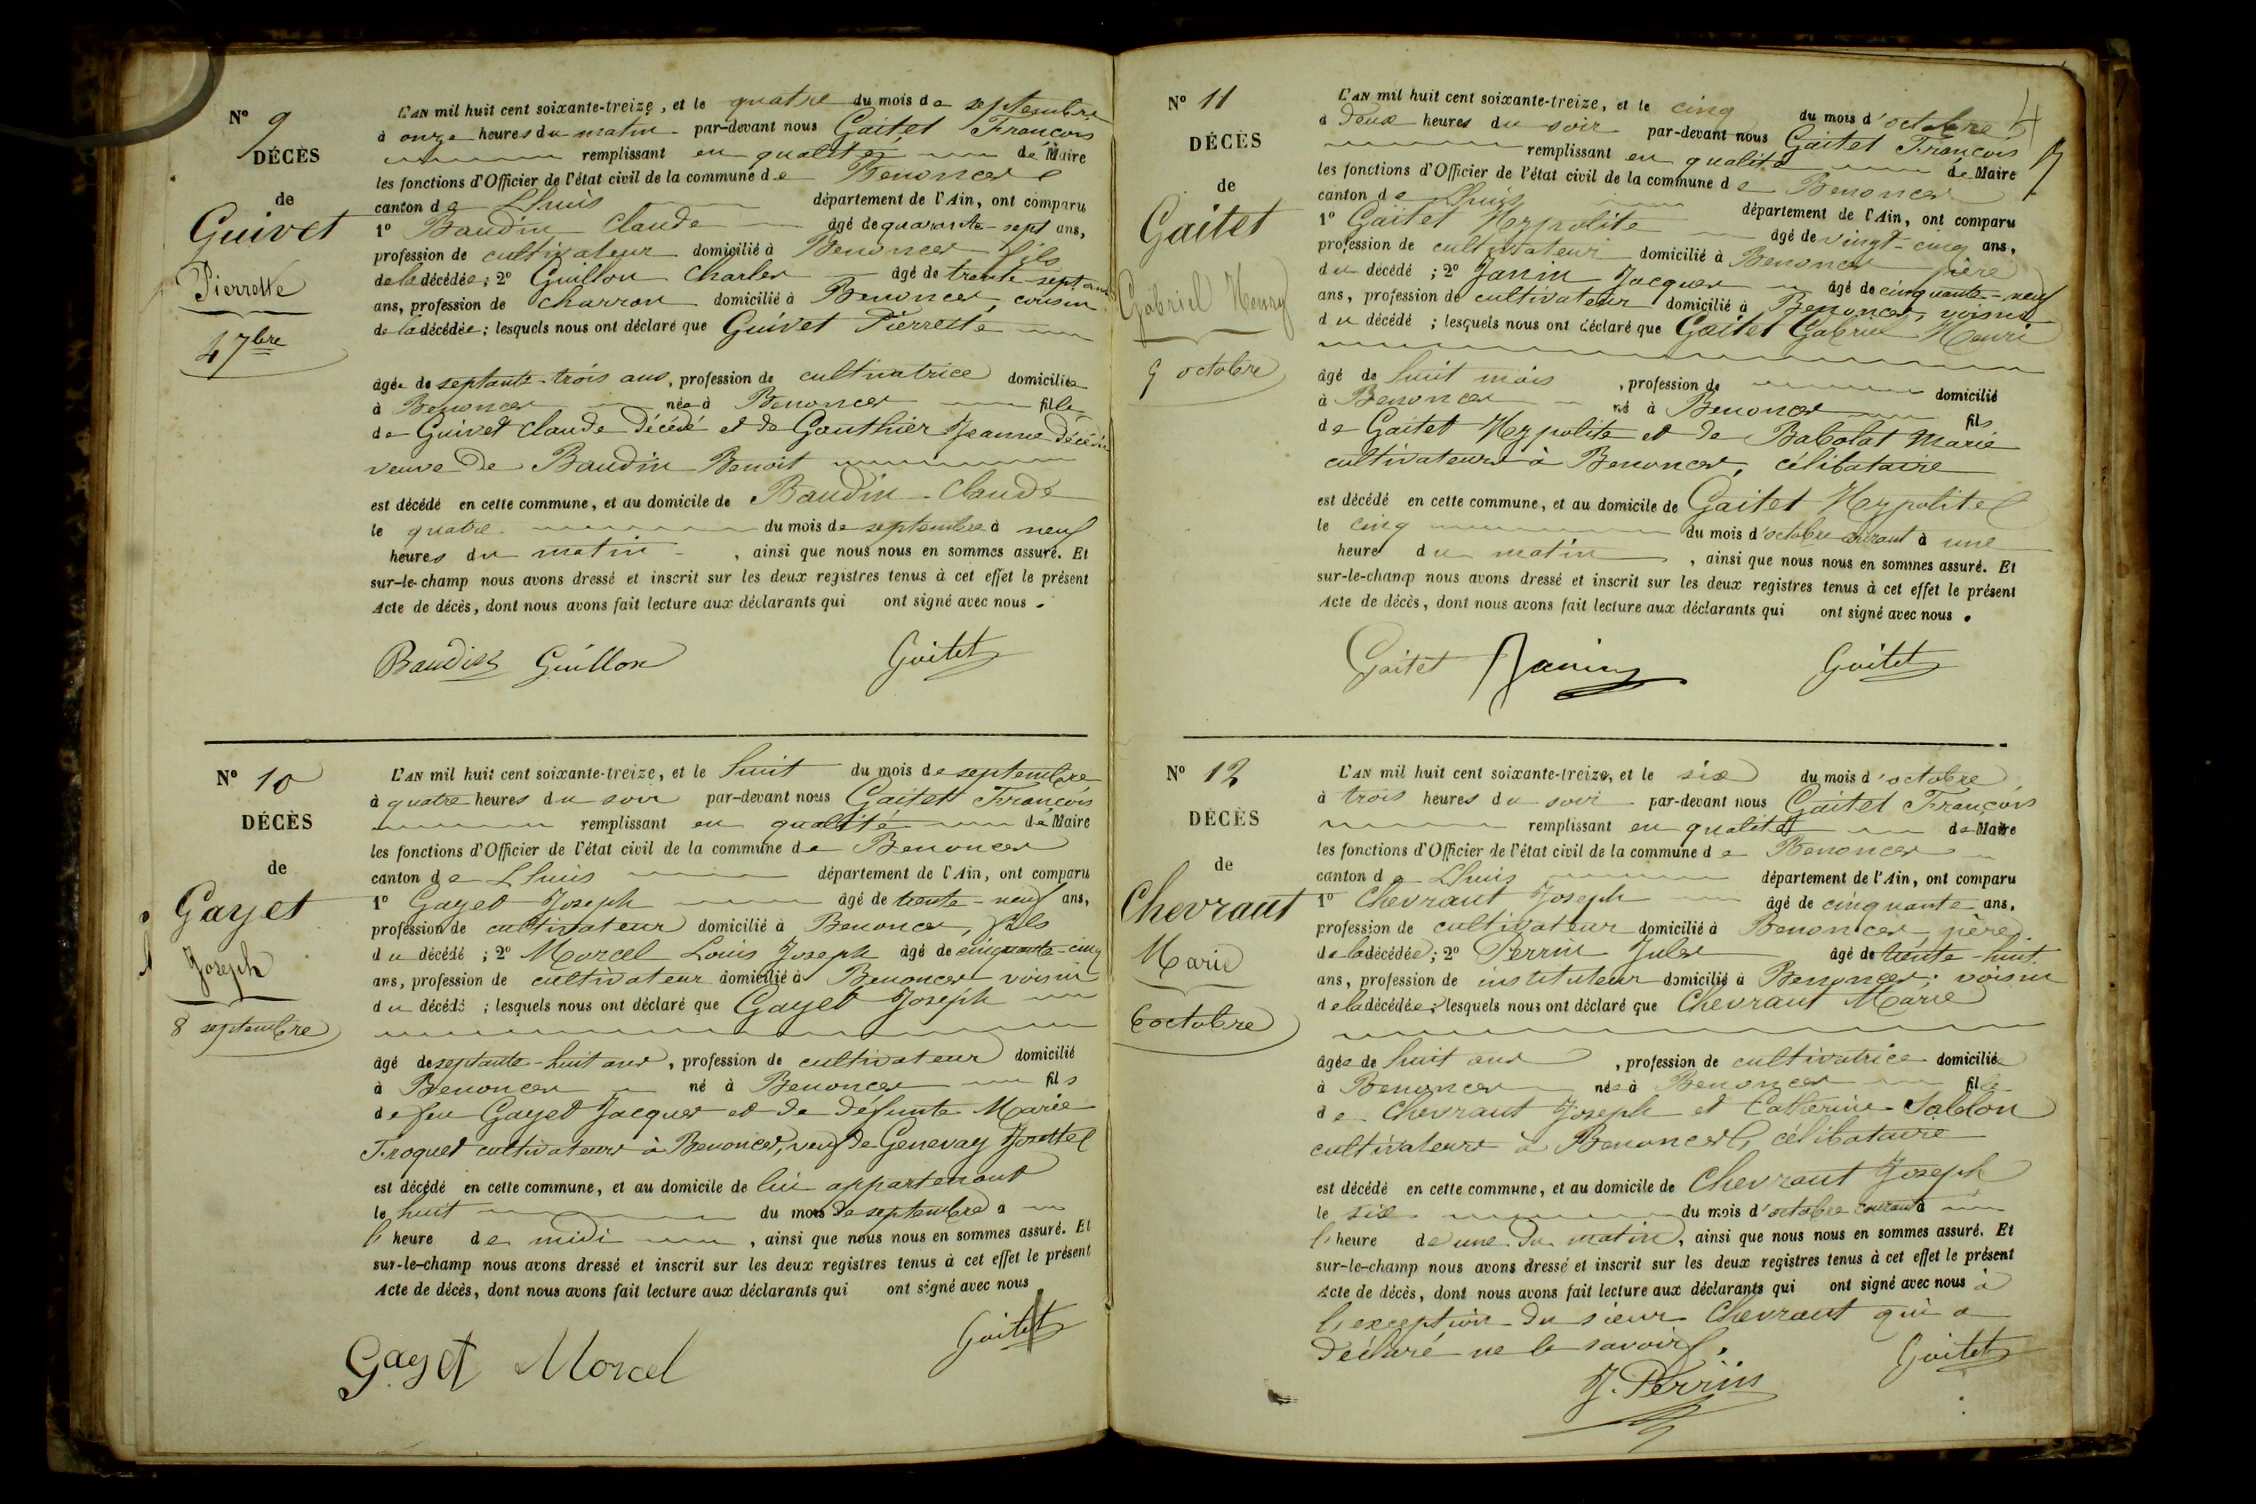 N° 9
DÉCÈS
de
Guivet
Pierrette
4 7bre
L'AN mil huit cent soixante-treize, et le quatre du mois de septembre
à onze heures du matin par-devant nous Gaitet François
remplissant en qualité de Maire
les fonctions d'Officier de l'état civil de la commune de Benonces
canton de Lhuis département de l'Ain, ont comparu
1° Baudin Claude âgé de quarante-sept ans,
profession de cultivateur domicilié à Benonces fils
de la décédée; 2° Guillon Charles âgé de trente-sept ans
ans, profession de charron domicilié à Benonces, cousin
de la décédée; lesquels nous ont déclaré que Guivet Pierrette
âgée de septante-trois ans, profession de cultivatrice domiciliée
à Benonces née à Benonces fille
de Guivet Claude décédé et de Gauthier Jeanne décédée
veuve de Baudin Benoit
est décédé en cette commune, et au domicile de Baudin Claude
le quatre du mois de septembre à neuf
heures du matin, ainsi que nous nous en sommes assuré. Et
sur-le-champ nous avons dressé et inscrit sur les deux registres tenus à cet effet le présent
Acte de décès, dont nous avons fait lecture aux déclarants qui ont signé avec nous.
Baudin Guillon Gaitet
N° 10
DÉCÈS
de
Gayet
Joseph
8 septembre
L'AN mil huit cent soixante-treize, et le huit du mois de septembre
à quatre heures du soir par-devant nous Gaitet François
remplissant en qualité de Maire
les fonctions d'Officier de l'état civil de la commune de Benonces
canton de Lhuis département de l'Ain, ont comparu
1° Gayet Joseph âgé de trente-neuf ans,
profession de cultivateur domicilié à Benonces, fils
du décédé; 2° Morcel Louis Joseph âgé de cinquante-cinq
ans, profession de cultivateur domicilié à Benonces voisin
du décédé; lesquels nous ont déclaré que Gayet Joseph
âgé de septante-huit ans, profession de cultivateur domicilié
à Benonces né à Benonces fils
de feu Gayet Jacques et de défunte Marie
Troquet cultivateurs à Benonces, veuf de Genevay Josette
est décédé en cette commune, et au domicile de lui appartenant
le huit du mois de septembre à
l'heure de midi, ainsi que nous nous en sommes assuré. Et
sur-le-champ nous avons dressé et inscrit sur les deux registres tenus à cet effet le présent
Acte de décès, dont nous avons fait lecture aux déclarants qui ont signé avec nous
Gayet Morcel Gaitet
4
N° 11
DÉCÈS
de
Gaitet
Gabriel Henry
5 octobre
L'AN mil huit cent soixante-treize, et le cinq du mois d'octobre
à deux heures du soir par-devant nous Gaitet François
remplissant en qualité de Maire
les fonctions d'Officier de l'état civil de la commune de Benonces
canton de Lhuis département de l'Ain, ont comparu
1° Gaitet Hyppolite âgé de vingt-cinq ans,
profession de cultivateur domicilié à Benonces père
du décédé; 2° Janin Jacques âgé de cinquante-neuf
ans, profession de cultivateur domicilié à Benonces, voisin
du décédé; lesquels nous ont déclaré que Gaitet Gabriel Henri
âgé de huit mois, profession de domicilié
à Benonces né à Benonces fils
de Gaitet Hyppolite et de Babolat Marie
cultivateurs à Benonces, célibataire
est décédé en cette commune, et au domicile de Gaitet Hyppolite
le cinq du mois d'octobre courant à une
heure du matin, ainsi que nous nous en sommes assuré. Et
sur-le-champ nous avons dressé et inscrit sur les deux registres tenus à cet effet le présent
Acte de décès, dont nous avons fait lecture aux déclarants qui ont signé avec nous.
Gaitet Janin Gaitet
N° 12
DÉCÈS
de
Chevraut
Marie
6 octobre
L'AN mil huit cent soixante-treize, et le six du mois d'octobre
à trois heures du soir par-devant nous Gaitet François
remplissant en qualité de Maire
les fonctions d'Officier de l'état civil de la commune de Benonces
canton de Lhuis département de l'Ain, ont comparu
1° Chevraut Joseph âgé de cinquante ans,
profession de cultivateur domicilié à Benonces, père
de la décédée; 2° Perrin Jules âgé de trente-huit
ans, profession de instituteur domicilié à Benonces, voisin
de la décédée; lesquels nous ont déclaré que Chevraut Marie
âgée de huit ans, profession de cultivatrice domiciliée
à Benonces née à Benonces fille
de Chevraut Joseph et Catherine Sablon
cultivateurs à Benonces, célibataire
est décédé en cette commune, et au domicile de Chevraut Joseph
le six du mois d'octobre courant à
l'heure de une du matin, ainsi que nous nous en sommes assuré. Et
sur-le-champ nous avons dressé et inscrit sur les deux registres tenus à cet effet le présent
Acte de décès, dont nous avons fait lecture aux déclarants qui ont signé avec nous à
l'exception du sieur Chevraut qui a
déclaré ne le savoir.
J. Perrin Gaitet